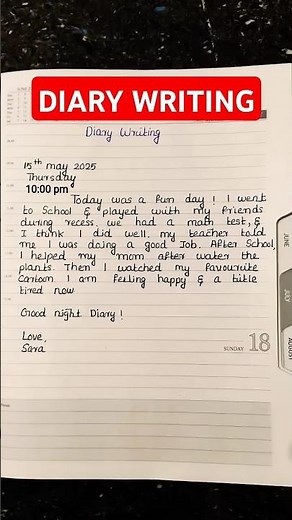 DIARY WRITING
Diary Writing
15th may 2025
Thursday
10:00 pm
Today was a fun day! I went
to School & played with my friends
during recess. we had a math test, &
I think I did well. my teacher told
me I was doing a good Job. After School,
I helped my mom after water the
plants. Then I watched my favourite
Cartoon I am feeling happy & a little
tired now
Good night Diary!
Love,
Sara
SUNDAY 18
JUNE
JULY
AUGUST